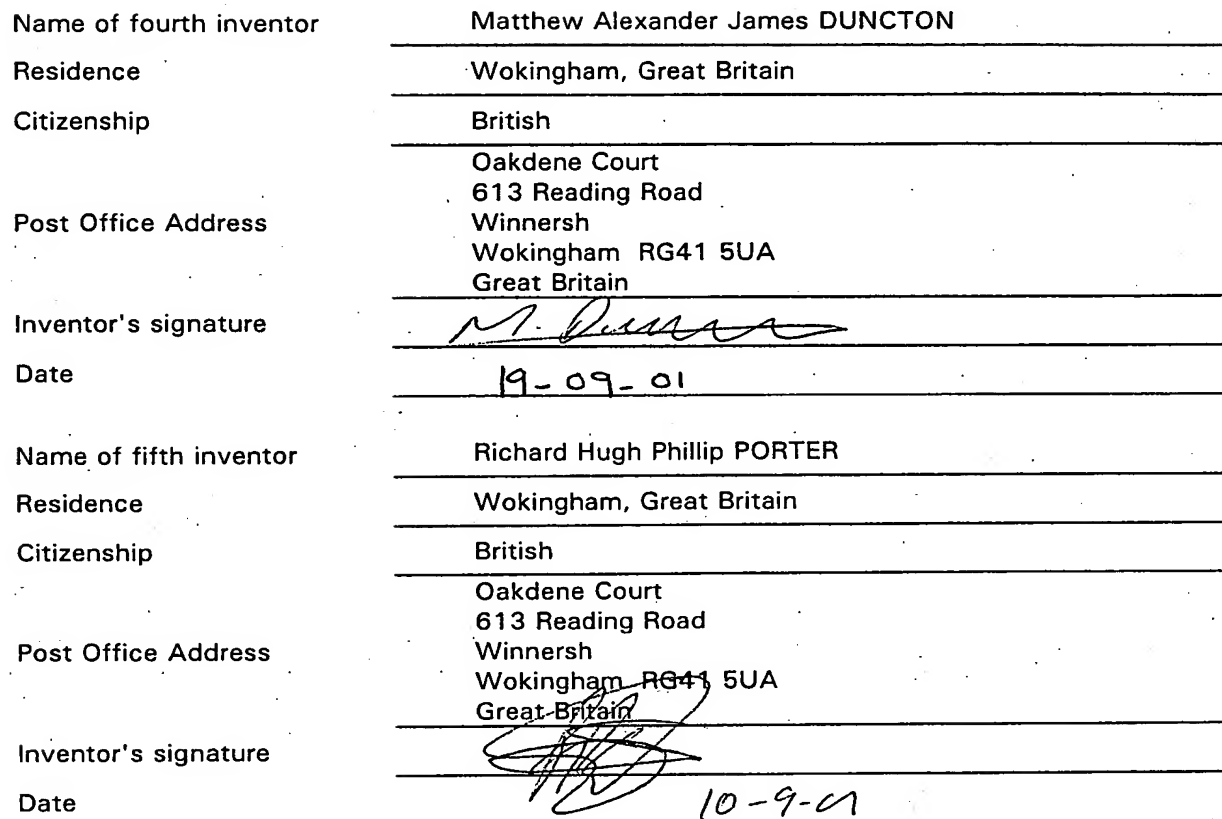 Name of fourth inventor Matthew Alexander James DUNCTON
Residence Wokingham, Great Britain
Citizenship British
Oakdene Court
613 Reading Road
Post Office Address Winnersh
Wokingham RG41 5UA
Great Britain
Inventor's signature M.
Date 19-09-01
Name of fifth inventor Richard Hugh Phillip PORTER
Residence Wokingham, Great Britain
Citizenship British
Oakdene Court
613 Reading Road
Post Office Address Winnersh
Wokingham RG41 5UA
Great Britain
Inventor's signature
Date 10-9-01